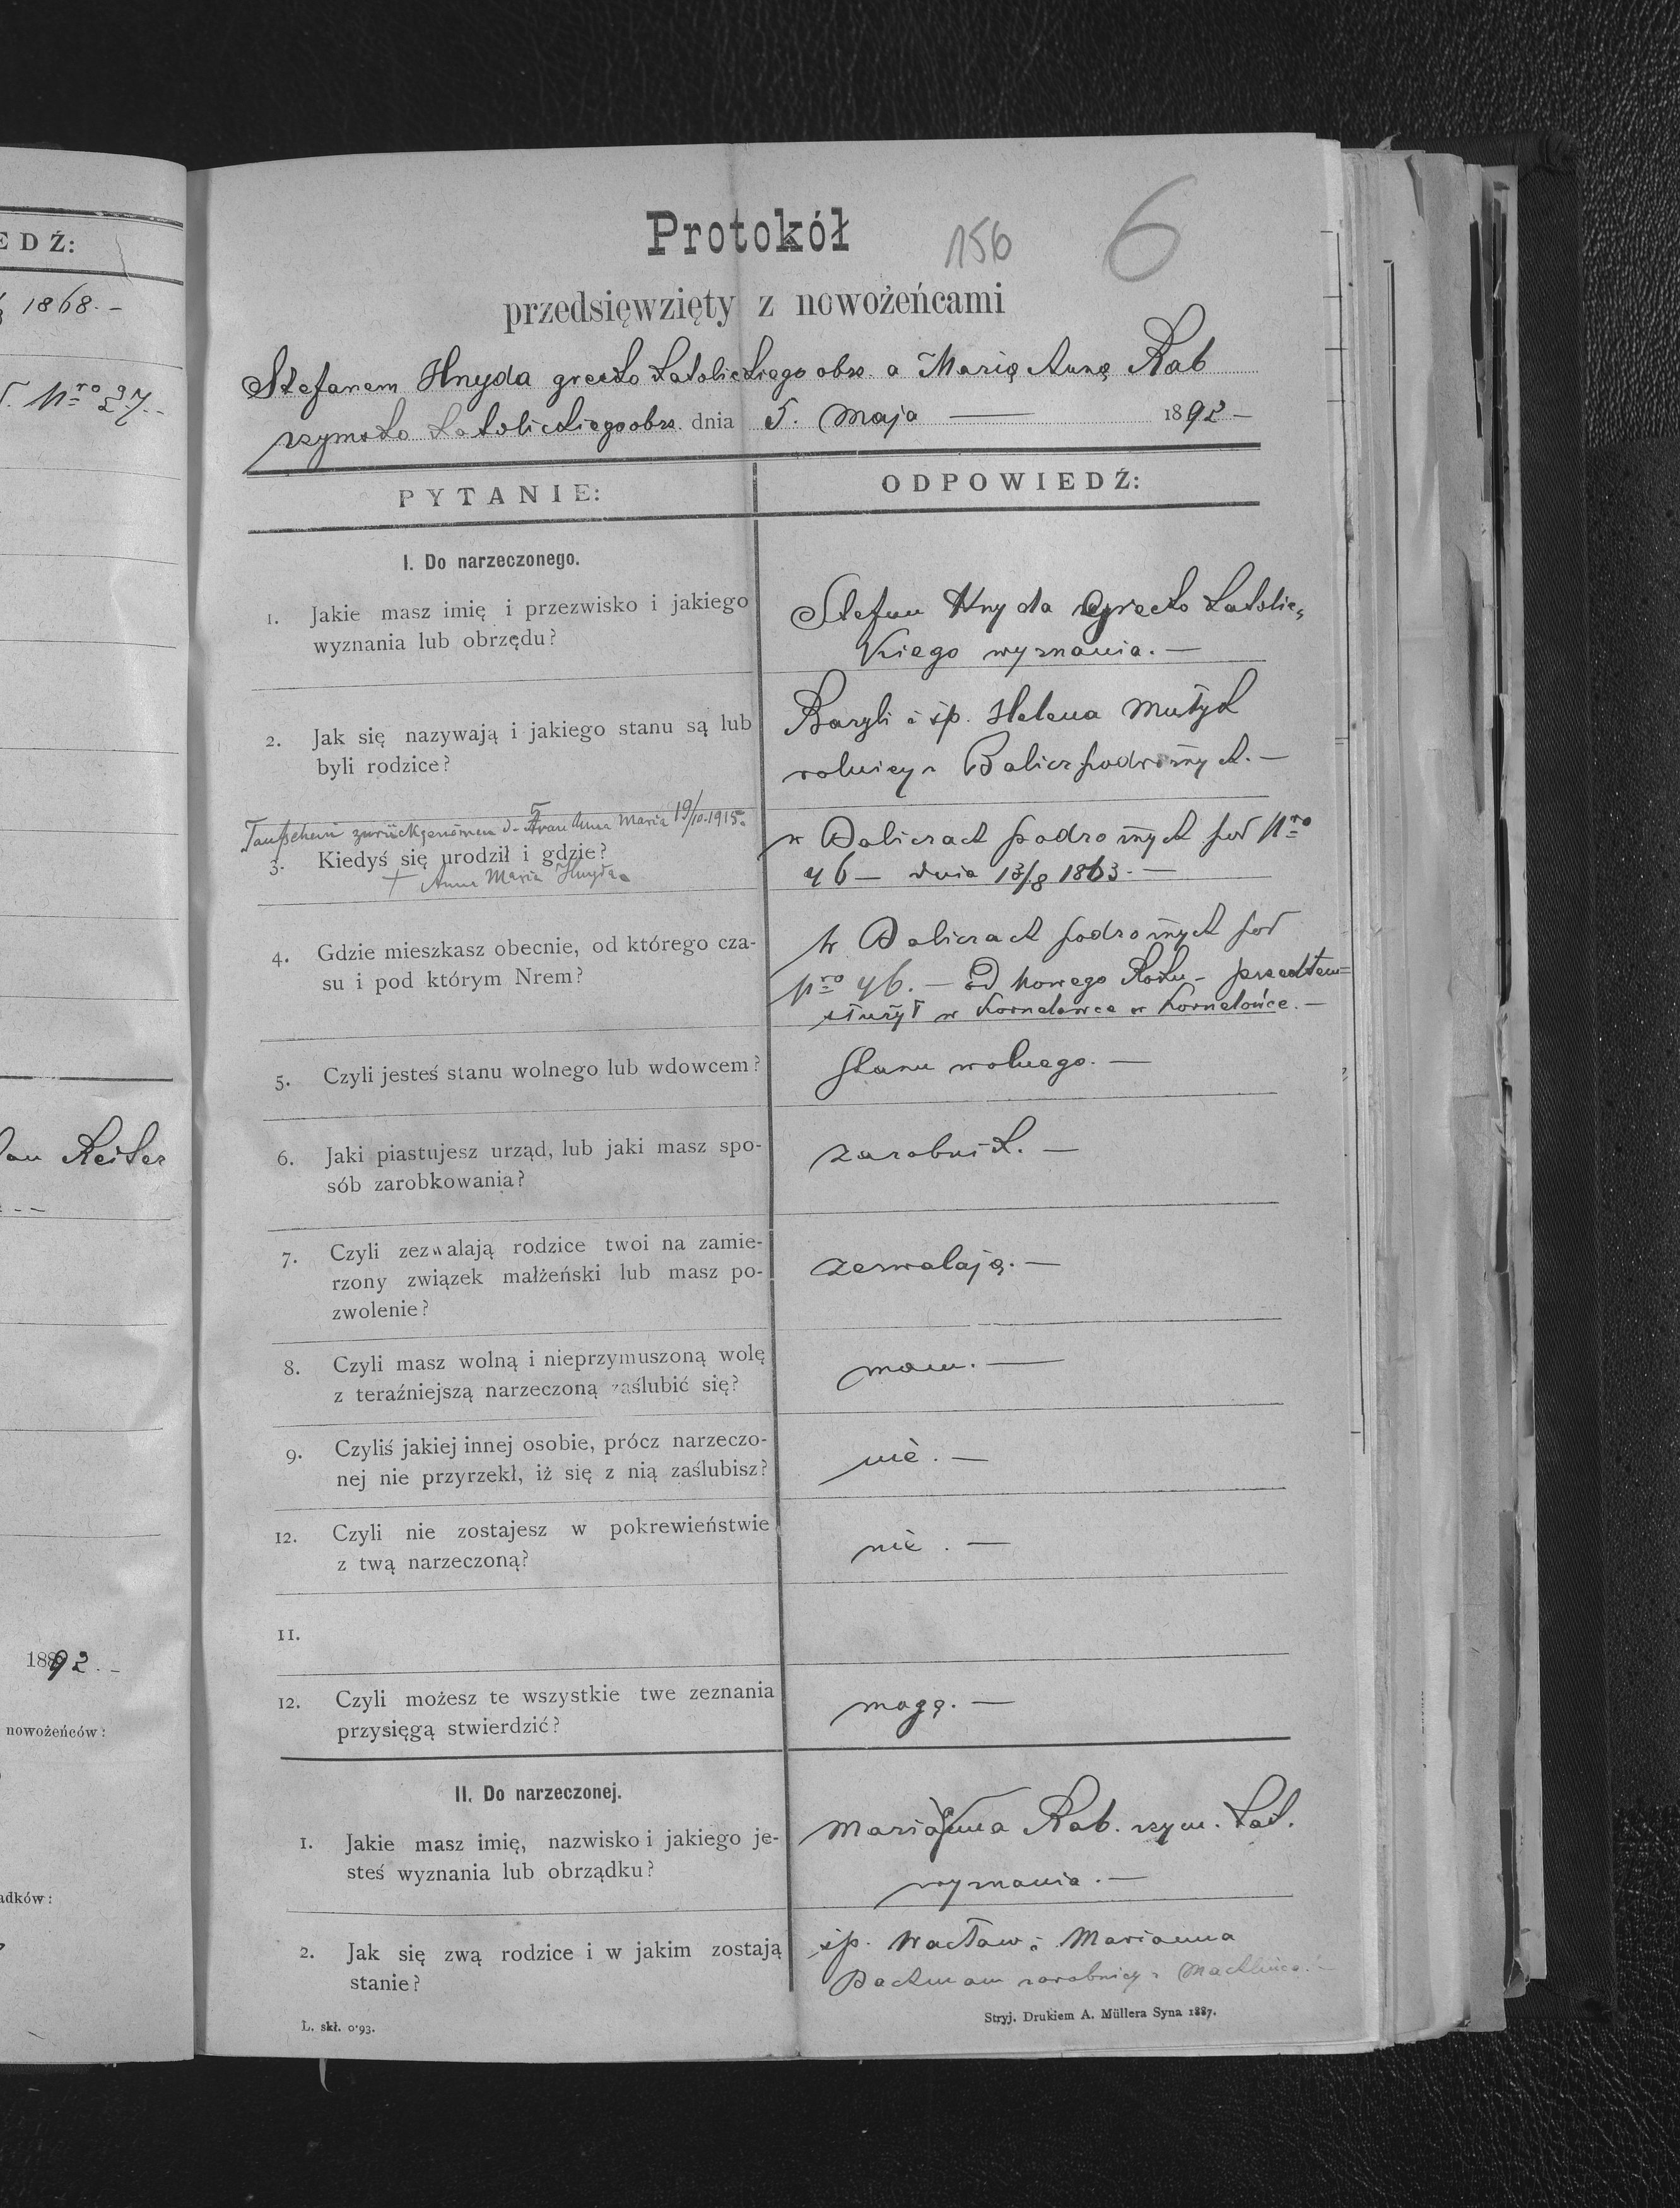 EDŹ:
1868.–
Nro 27.–
Reiter
1892.–
nowożeńców:
adków:
Protokół
156
6
przedsięwzięty z nowożeńcami
Stefanem Hnyda grecko katolickiego obrz. a Marią Anną Rab
rzymsko katolickiego obrz. dnia 5. Maja — 1892 –
PYTANIE:
ODPOWIEDŹ:
I. Do narzeczonego.
1. Jakie masz imię i przezwisko i jakiego
wyznania lub obrzędu?
Stefan Hnyda grecko katolic=
kiego wyznania. —
2. Jak się nazywają i jakiego stanu są lub
byli rodzice?
Bazyli i śp. Helena Mutyk
rolnicy z Balicz podrożnych. —
Taufschein zurückgenommen d. Frau Anna Maria 19/10.1915.
3. Kiedyś się urodził i gdzie?
+ Anna Maria Hnyda
w Baliczach podrożnych pod Nro
46 — dnia 13/8 1863. —
4. Gdzie mieszkasz obecnie, od którego cza-
su i pod którym Nrem?
w Baliczach podrożnych pod
Nro 46. — od Nowego Roku – przedtem=
służył w Kornelowce w Kornelońce. —
5. Czyli jesteś stanu wolnego lub wdowcem?
stanu wolnego. —
6. Jaki piastujesz urząd, lub jaki masz spo-
sób zarobkowania?
zarobnik. —
7. Czyli zezwalają rodzice twoi na zamie-
rzony związek małżeński lub masz po-
zwolenie?
zezwalają. —
8. Czyli masz wolną i nieprzymuszoną wolę
z teraźniejszą narzeczoną zaślubić się?
mam. —
9. Czyliś jakiej innej osobie, prócz narzeczo-
nej nie przyrzekł, iż się z nią zaślubisz?
nie. —
12. Czyli nie zostajesz w pokrewieństwie
z twą narzeczoną?
nie. —
11.
12. Czyli możesz te wszystkie twe zeznania
przysięgą stwierdzić?
mogę. —
II. Do narzeczonej.
1. Jakie masz imię, nazwisko i jakiego je-
steś wyznania lub obrządku?
Maria Anna Rab. rzym. kat.
wyznania. —
2. Jak się zwą rodzice i w jakim zostają
stanie?
śp. Wacław i Marianna
Bachmann zarobnicy z Machlińca. —
L. skł. 0·93.
Stryj. Drukiem A. Müllera Syna 1887.